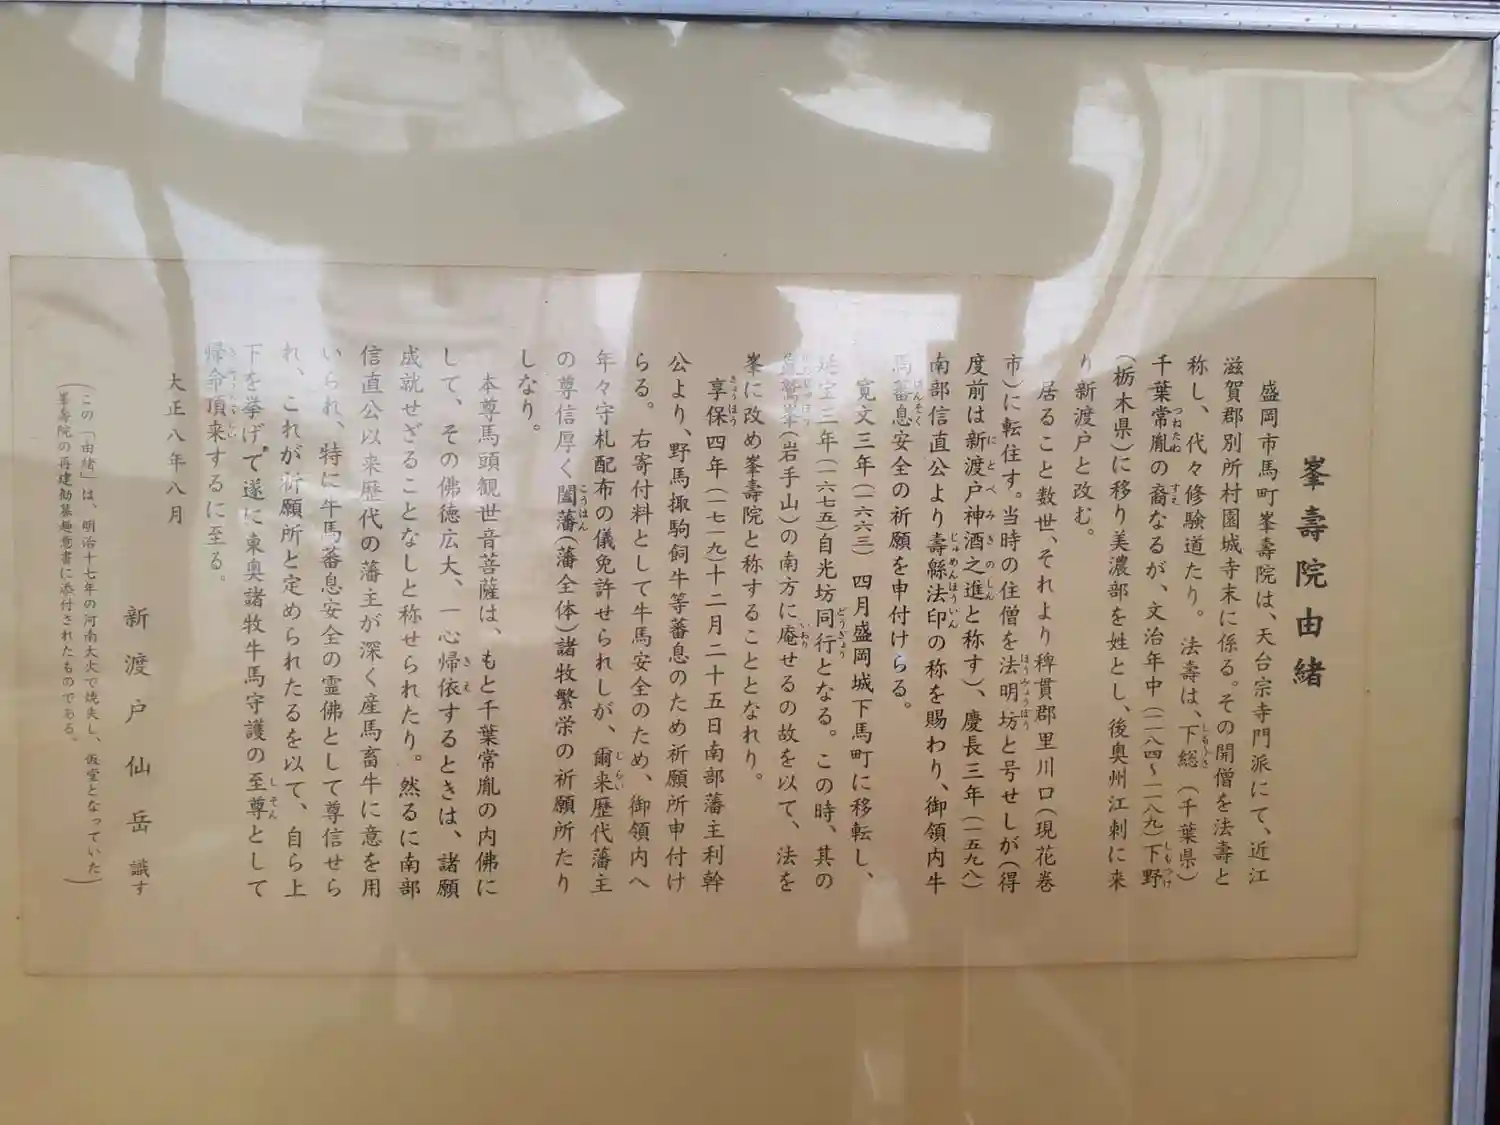 峯壽院由緒
盛岡市馬町峯壽院は、天台宗寺門派にて、近江
滋賀郡別所村園城寺末に係る。その開僧を法壽と
称し、代々修験道たり。法壽は、下総（千葉県）
千葉常胤の裔なるが、文治年中（一一八四～一一八九）下野
（栃木県）に移り美濃部を姓とし、後奥州江刺に来
り新渡戸と改む。
居ること数世、それより稗貫郡里川口（現花巻
市）に転住す。当時の住僧を法明坊と号せしが（得
度前は新渡戸神酒之進と称す）、慶長三年（一五九八）
南部信直公より壽縣法印の称を賜わり、御領内牛
馬蕃息安全の祈願を申付けらる。
寛文三年（一六六三）四月盛岡城下馬町に移転し、
延宝三年（一六七五）自光坊同行となる。この時、其の
鷲峯（岩手山）の南方に庵せるの故を以て、法を
峯に改め峯壽院と称することとなれり。
享保四年（一七一九）十二月二十五日南部藩主利幹
公より、野馬掫駒飼牛等蕃息のため祈願所申付け
らる。右寄付料として牛馬安全のため、御領内へ
年々守札配布の儀免許せられしが、爾来歴代藩主
の尊信厚く闔藩（藩全体）諸牧繁栄の祈願所たり
しなり。
本尊馬頭観世音菩薩は、もと千葉常胤の内佛に
して、その佛徳広大、一心帰依するときは、諸願
成就せざることなしと称せられたり。然るに南部
信直公以来歴代の藩主が深く産馬畜牛に意を用
いられ、特に牛馬蕃息安全の霊佛として尊信せら
れ、これが祈願所と定められたるを以て、自ら上
下を挙げて遂に東奥諸牧牛馬守護の至尊として
帰命頂来するに至る。
大正八年八月
新渡戸仙岳 識す
（この「由緒」は、明治十七年の河南大火で焼失し、仮堂となっていた
峯寿院の再建勧募趣意書に添付されたものである。）